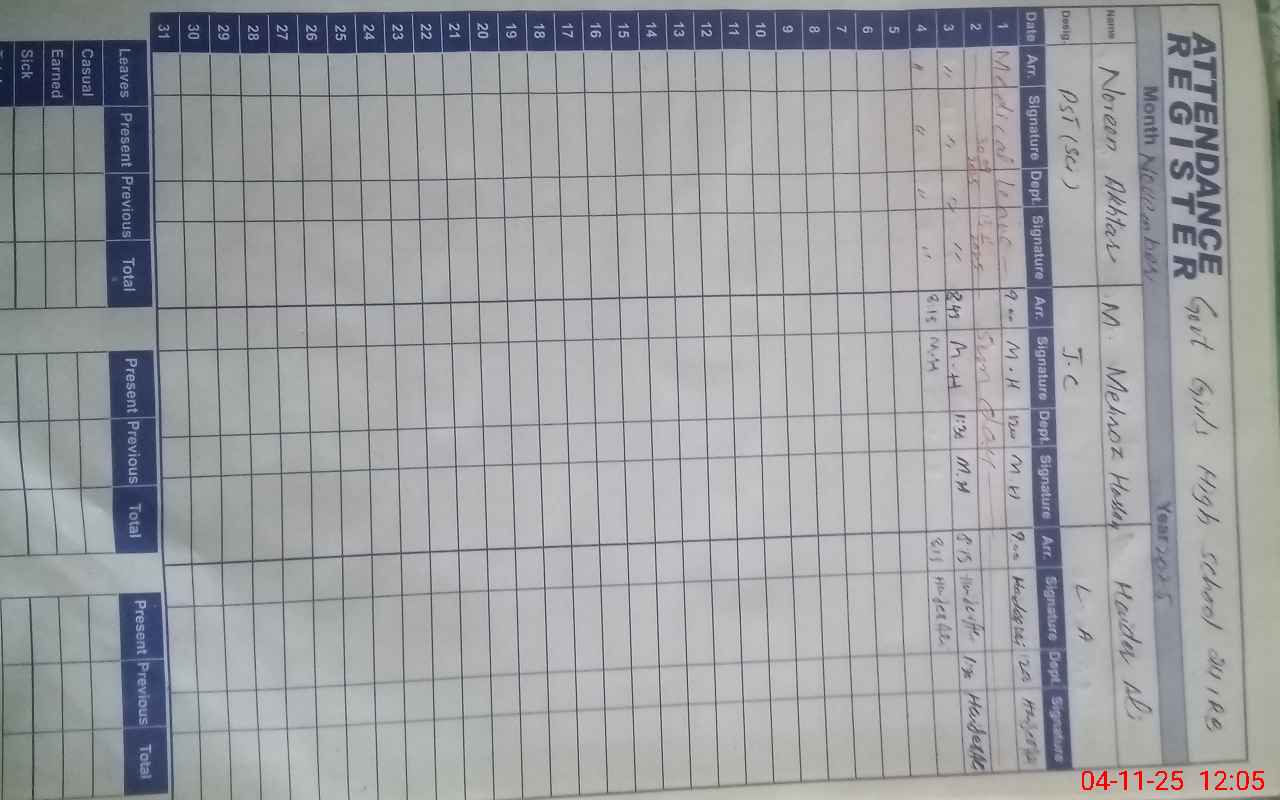 ATTENDANCE REGISTER Govt Girls High school 241RB
Month November Year 2025
Name Noreen Akhtar M. Mehnaz Hassan Haider Ali
Desig. PST (Sci) J.C L A
Date Arr. Signature Dept. Signature Arr. Signature Dept. Signature Arr. Signature Dept. Signature
1 Medical leave 9:00 M.H 1200 M.H 9:00
2 Sunday
3 " " " " 8:45 M.H 1:30 M.H 8:15 1:30
4 " " " " 8:15 M.H 8:15
5
6
7
8
9
10
11
12
13
14
15
16
17
18
19
20
21
22
23
24
25
26
27
28
29
30
31
Leaves Present Previous Total Present Previous Total Present Previous Total
Casual
Earned
Sick
04-11-25 12:05